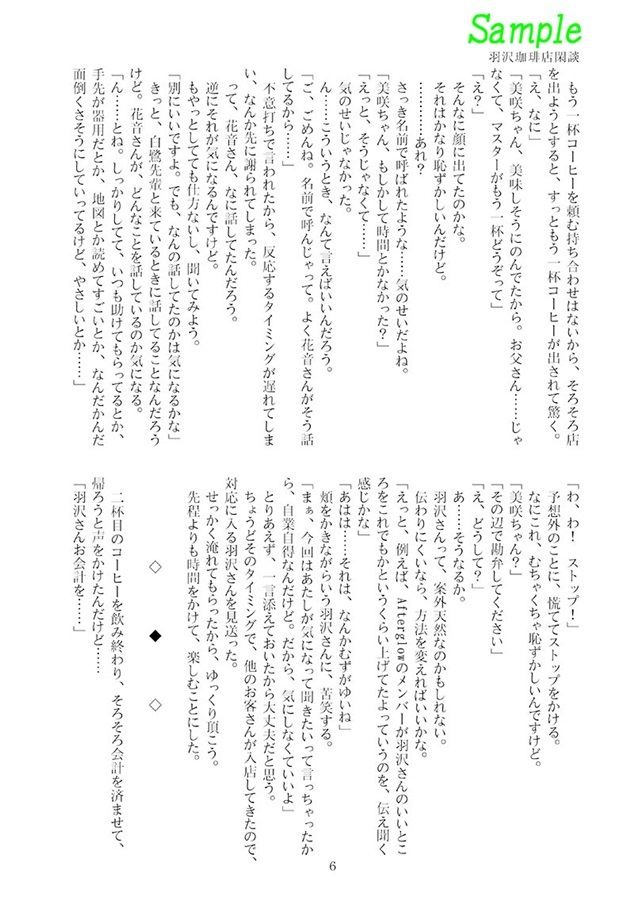 Sample
羽沢珈琲店閑談
　もう一杯コーヒーを頼む持ち合わせはないから、そろそろ店
を出ようとすると、すっともう一杯コーヒーが出されて驚く。
「え、なに」
「美咲ちゃん、美味しそうにのんでたから。お父さん……じゃ
なくて、マスターがもう一杯どうぞって」
「え？」
　そんなに顔に出てたのかな。
　それはかなり恥ずかしいんだけど。
　…………あれ？
　さっき名前で呼ばれたような……気のせいだよね。
「美咲ちゃん、もしかして時間とかなかった？」
「えっと、そうじゃなくて……」
　気のせいじゃなかった。
　ん……こういうとき、なんて言えばいいんだろう。
「ご、ごめんね。名前で呼んじゃって。よく花音さんがそう話
してるから……」
　不意打ちで言われたから、反応するタイミングが遅れてしま
い、なんか先に謝られてしまった。
　って、花音さん、なに話してたんだろう。
　逆にそれが気になるんですけど。
　もやっとしてても仕方ないし、聞いてみよう。
「別にいいですよ。でも、なんの話してたのかは気になるかな」
　きっと、白鷺先輩と来ているときに話してることなんだろう
けど。花音さんが、どんなことを話しているのか気になる。
「ん……とね。しっかりしてて、いつも助けてもらってるとか、
手先が器用だとか、地図とか読めてすごいとか、なんだかんだ
面倒くさそうにしていってるけど、やさしいとか……」
「わ、わ！　ストップ！」
　予想外のことに、慌ててストップをかける。
　なにこれ、むちゃくちゃ恥ずかしいんですけど。
「美咲ちゃん？」
「その辺で勘弁してください」
「え、どうして？」
　あ……そうなるか。
　羽沢さんって、案外天然なのかもしれない。
　伝わりにくいなら、方法を変えればいいかな。
「えっと、例えば、Afterglowのメンバーが羽沢さんのいいとこ
ろをこれでもかというくらい上げてたよっていうのを、伝え聞く
感じかな」
「あはは……それは、なんかむずがゆいね」
　頬をかきながらいう羽沢さんに、苦笑する。
「まぁ、今回はあたしが気になって聞きたいって言っちゃったか
ら、自業自得なんだけど。だから、気にしなくていいよ」
　とりあえず、一言添えておいたから大丈夫だと思う。
　ちょうどそのタイミングで、他のお客さんが入店してきたので、
対応に入る羽沢さんを見送った。
　せっかく淹れてもらったから、ゆっくり頂こう。
　先程よりも時間をかけて、楽しむことにした。
◇　◆　◇
　二杯目のコーヒーを飲み終わり、そろそろ会計を済ませて、
帰ろうと声をかけたんだけど……
「羽沢さんお会計を……」
6